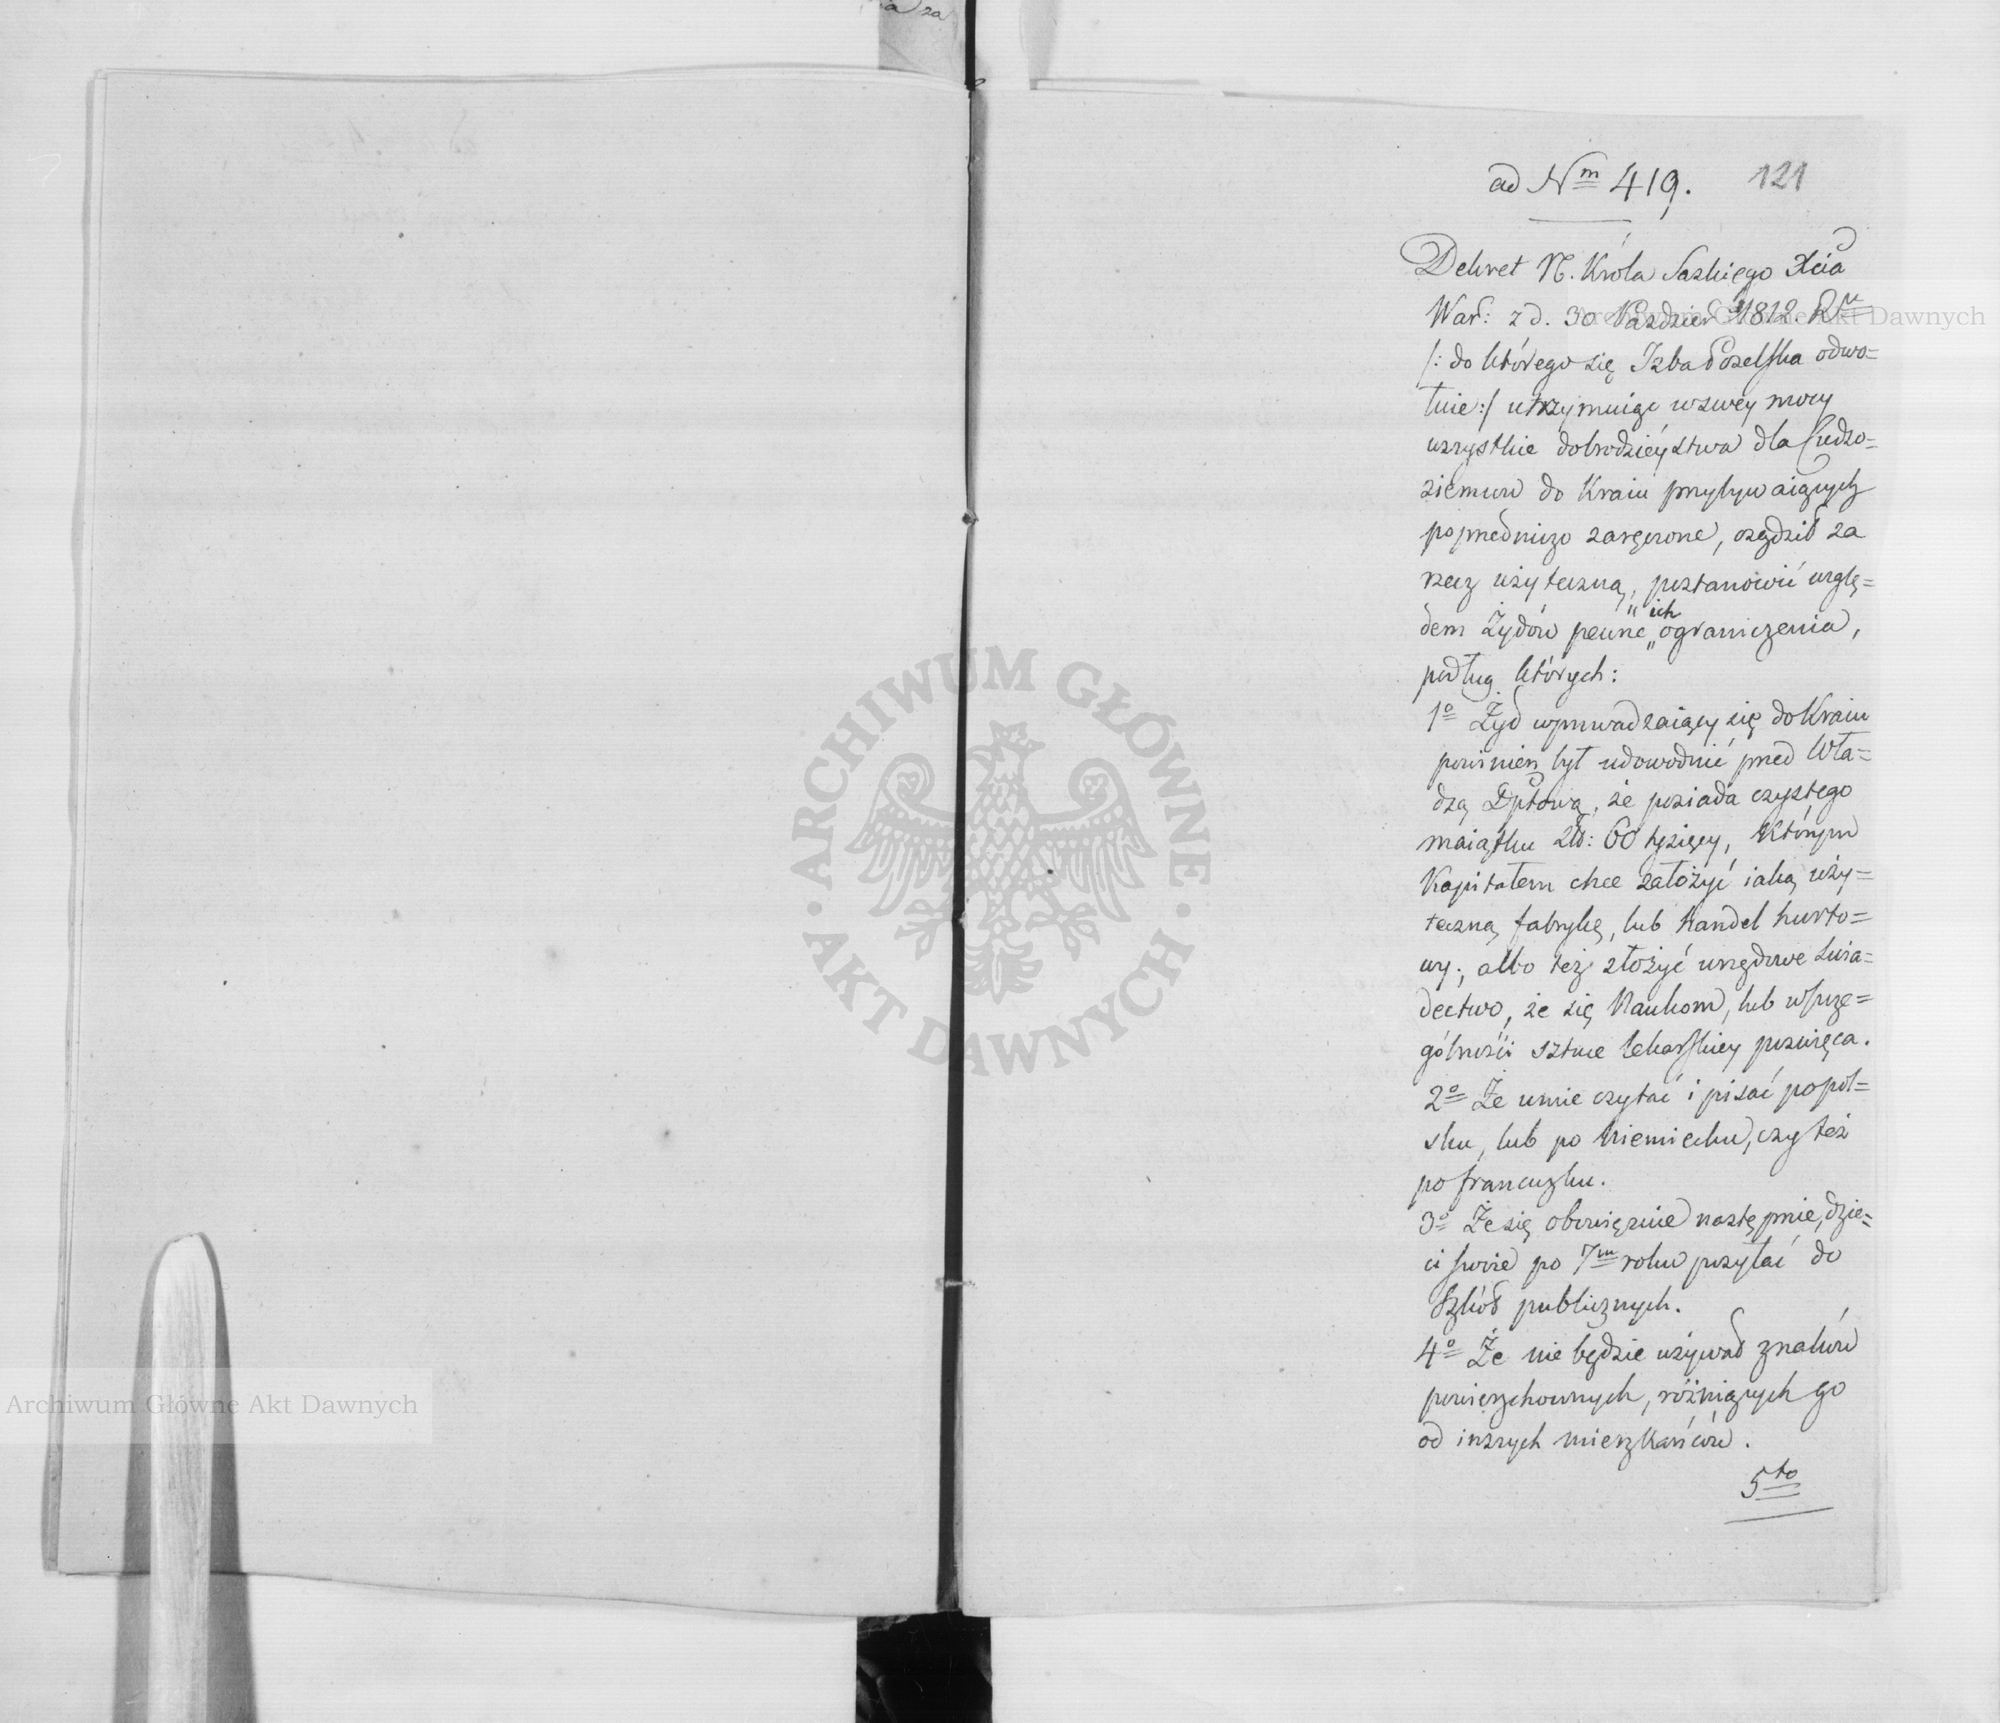 ad N<sup>m</sup> 419. 121
Dekret N. Króla Saskiego Xcia
War: z d. 30 Paździer 1812. R<sup>u</sup>
/: do którego się Izba Poselska odwo=
łuie :/ utrzymuiąc w swey mocy
wszystkie dobrodzieystwa dla Cudzo=
ziemców do Kraiu przybywaiących
poprzedniczo zaręczone, osądził za
rzecz użyteczną, postanowić wzglę=
dem Żydów pewne „ich
„ograniczenia,
podług których:
1<sup>o</sup> Żyd wprowadzaiący się do Kraiu
powinien był udowodnić przed Wła=
dzą Dptową, że posiada czystego
maiątku Złł: 60 tysięcy, którym
Kapitałem chce założyć iaką uży=
teczną fabrykę, lub handel hurto=
wy; albo też złożyć urzędowe świa=
dectwo, że się Naukom, lub w szcze=
gólności sztuce lekarskiey poświęca.
2<sup>o</sup> Że umie czytać i pisać po pol=
sku, lub po niemiecku, czy też
po francuzku.
3<sup>o</sup> Że się obowięzuie następnie, dzie=
ci swoie po 7<sup>m</sup> roku posyłać do
Szkół publicznych.
4<sup>o</sup> Że nie będzie używał znaków
powierzchownych, różniących go
od inszych mieszkańców.
5<sup>to</sup>
ARCHIWUM GŁÓWNE
AKT DAWNYCH
Archiwum Główne Akt Dawnych
Archiwum Główne Akt Dawnych